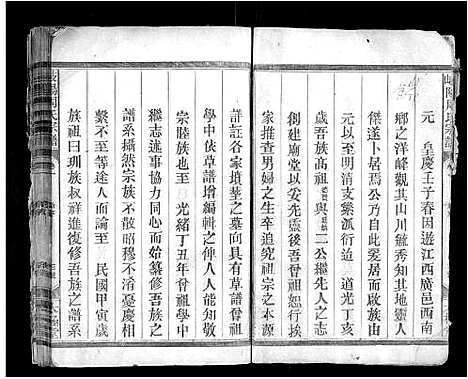 岐陽周氏宗譜
元　皇慶壬子春因遊江西廣邑西南
鄉之洋峰觀其山川毓秀知其地靈人
傑遂卜居焉公乃自此愛居而啟族由
元以至明清支藥派衍迨　道光丁亥
歲吾族高祖　與　二公繼先人之志
創建廟堂以妥先靈後吾曾祖不憚煩
勞進男婦之生卒追究祖宗之本源
詳註各家墳塋之墓向具有草譜曾祖
學中依草譜增編輯之俾人人能知敬
宗睦族也至　光緒丁丑年曾祖學中
繼志述事協力同心而始纂修吾族之
譜系攜然宗族大化不渚憂慶相
繫不至等途人而論至　民國甲寅歲
族祖曰玥族叔祥進復修吾族之譜系
岐陽周氏宗譜